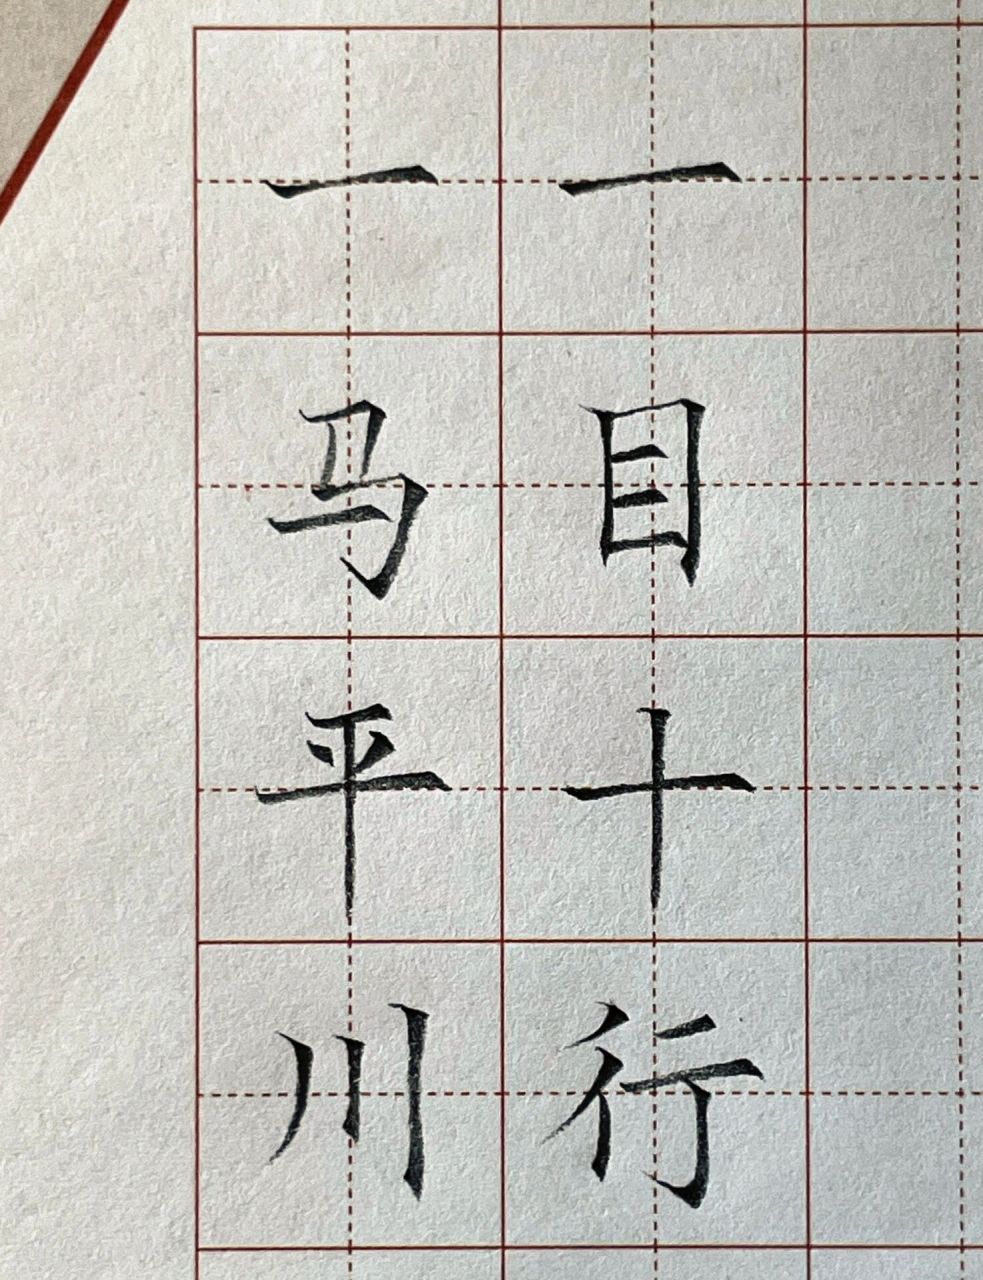 一马平川
一目十行